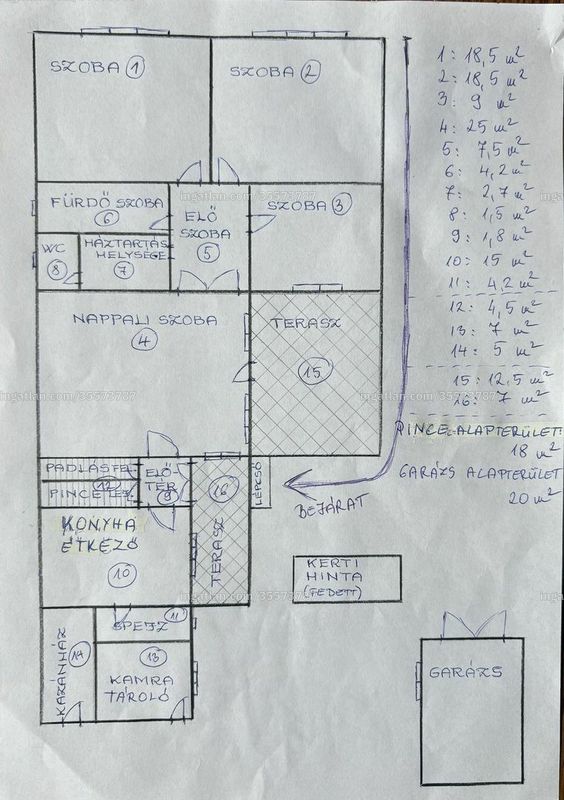 SZOBA 1
SZOBA 2
FÜRDŐ SZOBA
6
ELŐ
SZOBA
5
SZOBA 3
WC
8
HÁZTARTÁSI
HELYSÉGE
7
NAPPALI SZOBA
4
TERASZ
15
PADLÁSFEL
PINCE LEJ.
12
ELŐ-
TÉR
9
16
TERASZ
LÉPCSŐ
BEJÁRAT
KONYHA
ÉTKEZŐ
10
KERTI
HINTA
(FEDETT)
SPEJZ
11
KAZÁNHÁZ
14
13
KAMRA
TÁROLÓ
GARÁZS
1: 18,5 m²
2: 18,5 m²
3: 9 m²
4: 25 m²
5: 7,5 m²
6: 4,2 m²
7: 2,7 m²
8: 1,5 m²
9: 1,8 m²
10: 15 m²
11: 4,2 m²
12: 4,5 m²
13: 7 m²
14: 5 m²
15: 12,5 m²
16: 7 m²
PINCE ALAPTERÜLET:
18 m²
GARÁZS ALAPTERÜLET
20 m²
ingatlan.com/35573787